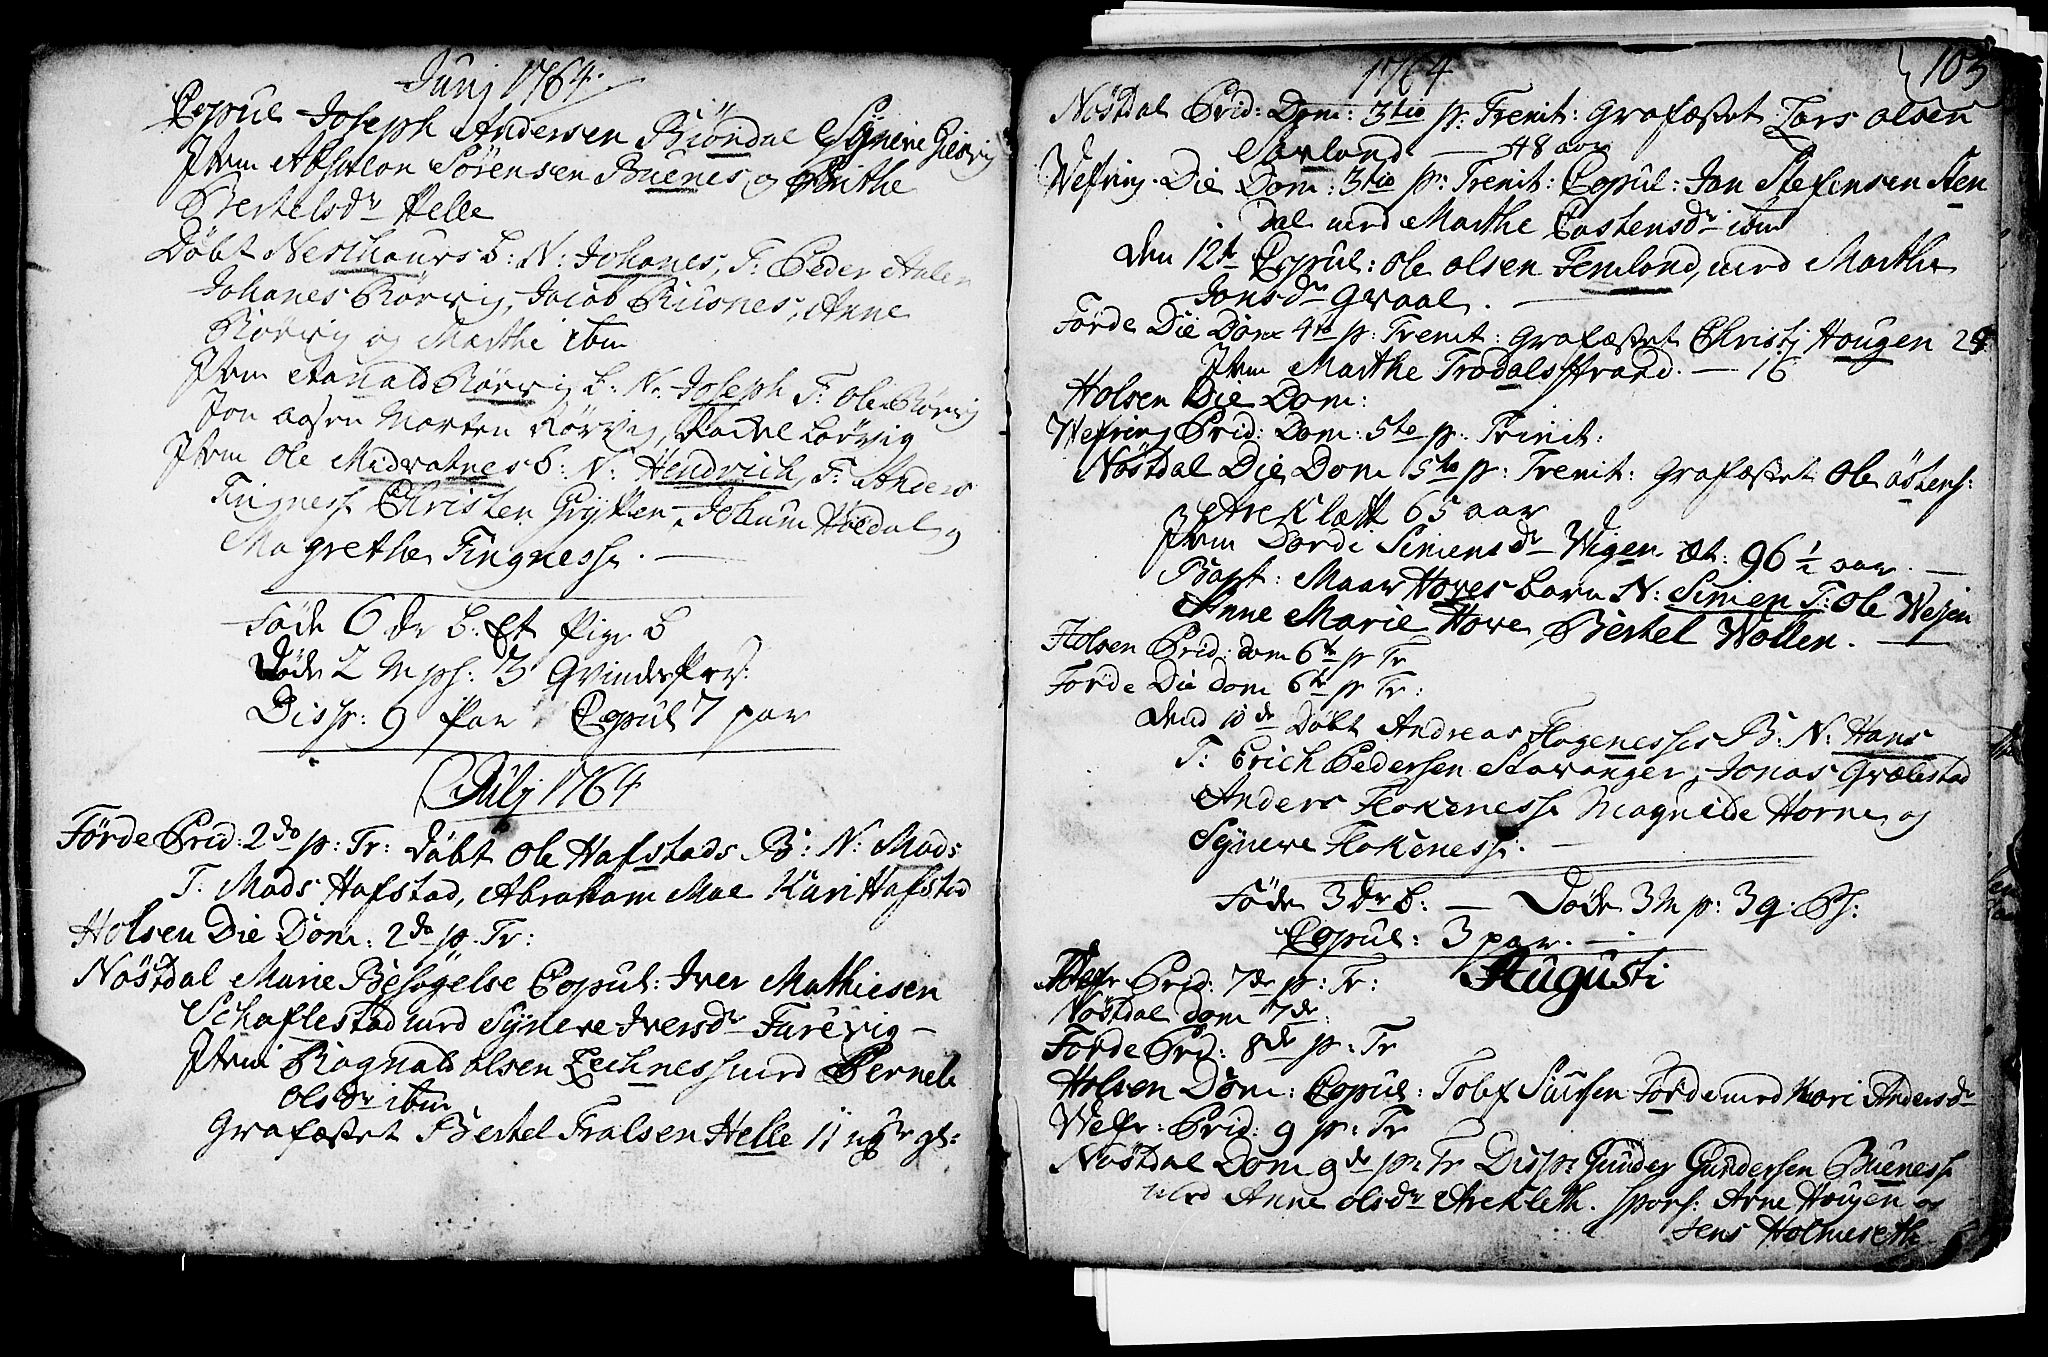 Junj 1764.
Copul Joseph Andersen Biöndal Synneve Giervig
Item Absalon Sörensen Buenes og Brithe
Bertelsdr Helle
Döbt Nesthaurs b: N: Johanes, T: Peder Aalen
Johanes Rörvig, Jacob Rusnes, Anne
Rörvig og Marthe ibm
Item Aanald Rörvig b. N. Joseph T: Ole Rörvig
Jon aasen Morten Rörvig, Rachel Lörvig
Item Ole Midvatnes b: N: Hendrich, T: Anders
Tingness Christen Grytten, Johum Höedal og
Magrethe Tingness.
Föde 6 dr b: Et Pige b
Döde 2 M ps: 3 Qvinde Prs:
Disp: 9 Par Copul 7 par
Julj 1764
Förde Prid: 2do p: Tr: döbt Ole Hafstads B: N: Mads
T. Mads Hafstad, Abraham Moe Kari Hafstad
Holsen Die Dom: 2do p. Tr:
Nöstdal Marie Besögelse Copul: Iver Mathiesen
Schaflestad med Synneve Iversdr Furevig
Item Ragnald olsen Lechness med Pernele
Olsdr ibm
Grafæstet Bertel Tralsen Helle 11 uger gl:
1764
103
Nöstdal Prid: Dom: 3tio p: Trenit: Grafæstet Lars olsen
Sarland 48 aar
Wefring. Die Dom: 3tio p: Trenit: Copul: Jan Stefensen Sten
dal med Marthe Castensdr ibm
den 12t Copul: ole olsen Femlond, med Marthe
Jonsdr Gravaal.
Förde Die Dom 4to p: Trenit: Grafæstet Christj Hougen 28
Item Marthe Trodals Strand. 16
Holsen Die Dom:
Wefring Prid: Dom: 5to p: Trinit:
Nöstdal Die Dom 5to p: Trenit: Grafæstet Ole östens:
Areklætt 65 aar
Item Dordi Simensdr Wigen æt: 96 1/2 aar.
Bapt: Maar Hoves barn N: Simen T: Ole Wefjen
Anne Marie Hove, Bertel Wollen.
Holsen Prid: dom 6te p Tr
Förde Die dom 6te p Tr:
dend 10de Döbt Andreas Flogenesses B: N: Hans
T: Erich Pedersen Stavanger, Jonas Qvalestad
Anders Flokeness Magnilde Horne og
Synneve Flokeness.
Föde 3 dr b. Döde 3 M p: 3 q: Ps:
Copul: 3 par.
Augusti
Wefr Prid: 7de p: Tr:
Nöstdal dom 7de:
Förde Prd: 8de p: Tr
Holsen Dom: Copul: Tolef Siursen Förde med Mari Andersdr
Wefr: Prid: 9 p: Tr
Nöstdal Dom 9de p: Tr Disp: Gunder Gundersen Bueness
med Anne Olsdr Arekleth. Spons: Arne Hougen og
Jens Holmeseth